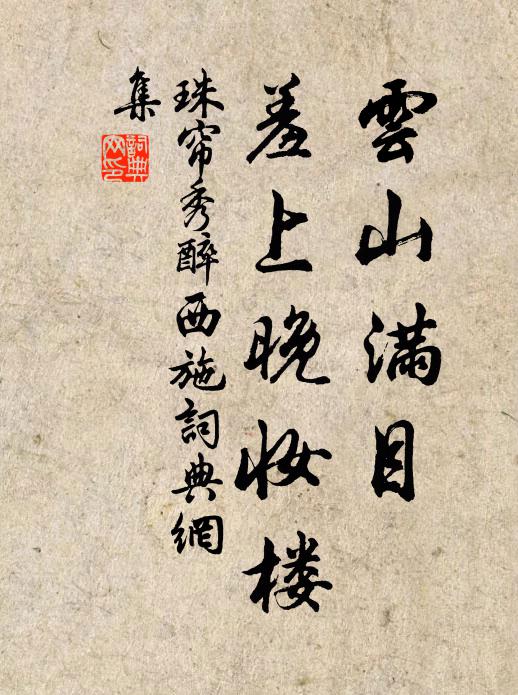 雲山滿目
羞上晚妆楼
珠帘秀醉西施詞典網
集
詞典
网印